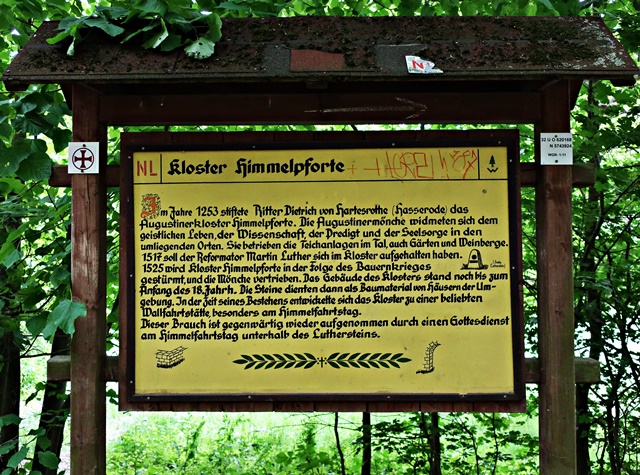 NL Kloster Himmelpforte
Im Jahre 1253 stiftete Ritter Dietrich von Hartesrothe (Hasserode) das
Augustinerkloster Himmelpforte. Die Augustinermönche widmeten sich dem
geistlichen Leben, der Wissenschaft, der Predigt und der Seelsorge in den
umliegenden Orten. Sie betrieben die Teichanlagen im Tal, auch Gärten und Weinberge.
1517 soll der Reformator Martin Luther sich im Kloster aufgehalten haben.
1525 wird Kloster Himmelpforte in der Folge des Bauernkrieges
gestürmt, und die Mönche vertrieben. Das Gebäude des Klosters stand noch bis zum
Anfang des 18. Jahrh. Die Steine dienten dann als Baumaterial von Häusern der Um-
gebung. In der Zeit seines Bestehens entwickelte sich das Kloster zu einer beliebten
Wallfahrtstätte, besonders am Himmelfahrtstag.
Dieser Brauch ist gegenwärtig wieder aufgenommen durch einen Gottesdienst
am Himmelfahrtstag unterhalb des Luthersteins.
32 U
N 5743924